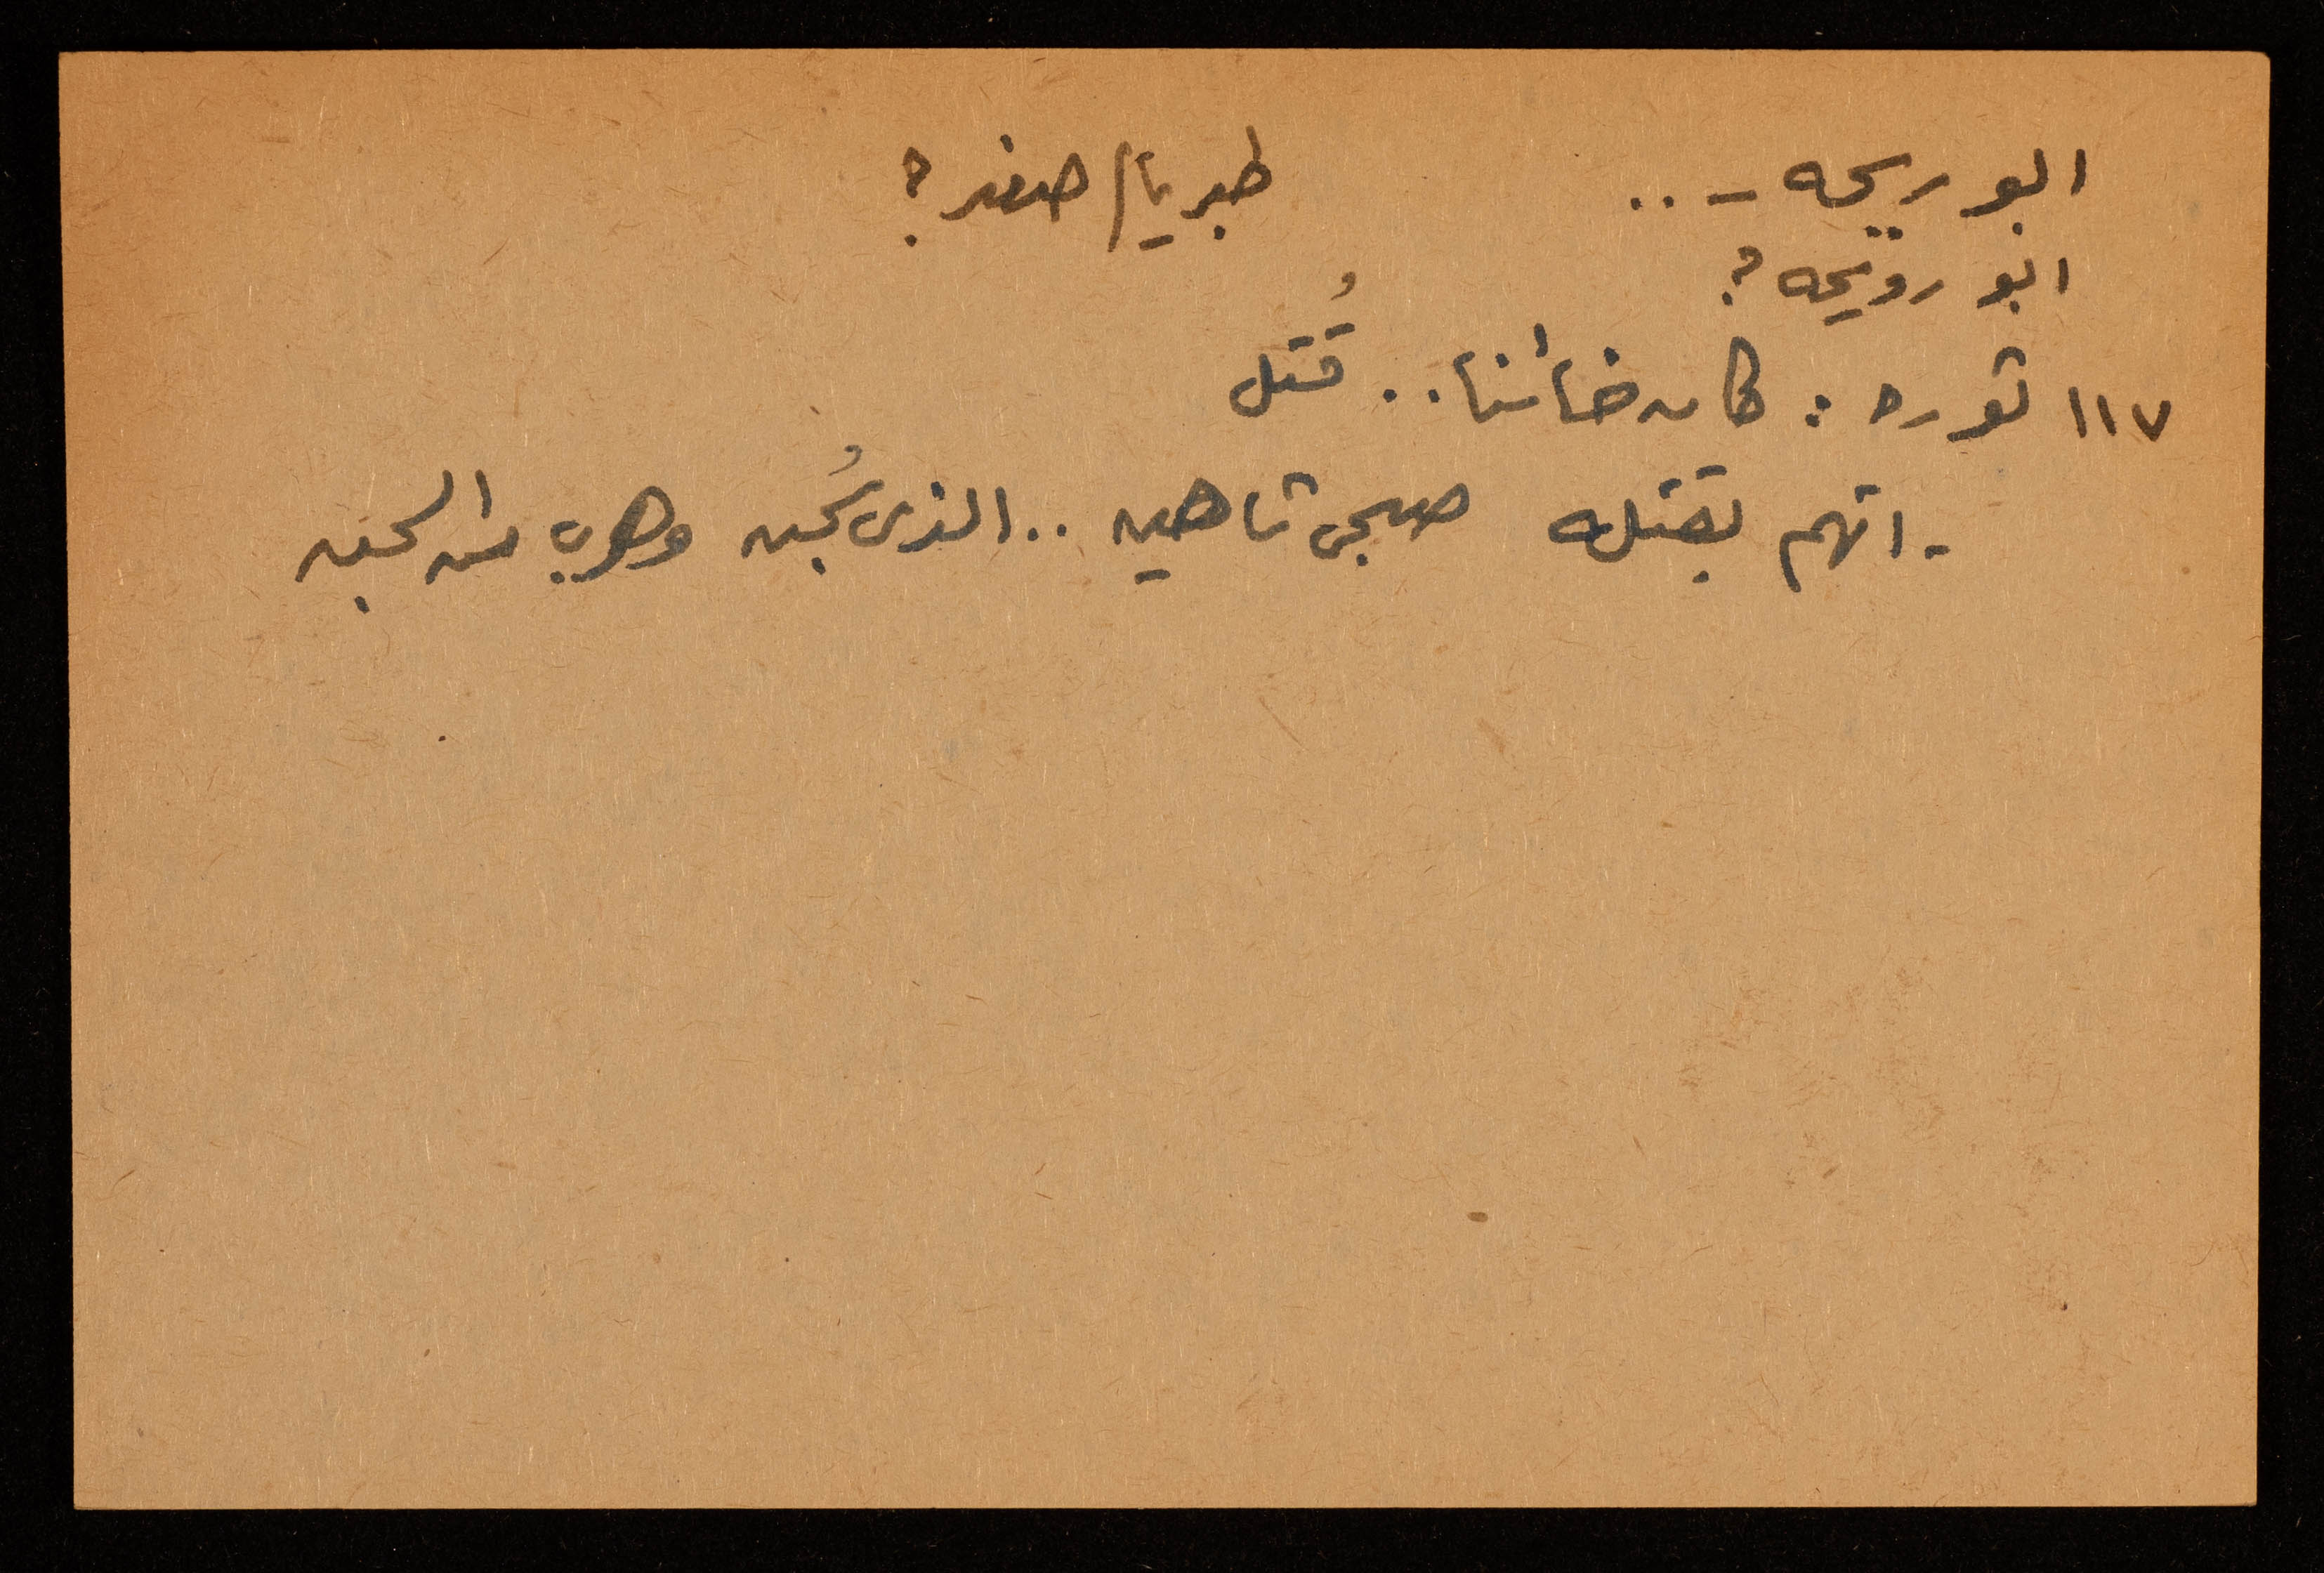 ابو ريحه - .. طبريا/صفد؟
ابو رويحه؟
١١٧ ثوره : كان خائنا .. قُتل
- اتهم بقتله صبحي شاهين .. الذي سُجن وهرب من السجن